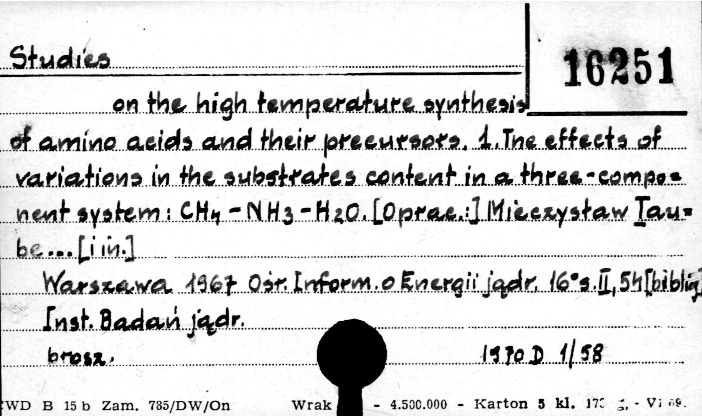 Studies
16251
on the high temperature synthesis
of amino acids and their precursors. 1. The effects of
variations in the substrates content in a three-compo=
nent system: CH4 - NH3 - H2O. [Oprac.:] Mieczysław Tau=
be... [i in.]
Warszawa 1967 Ośr. Inform. o Energii jądr. 16° s. II, 54 [bibliogr]
Inst. Badań jądr.
brosz.
1970 D 1/58
WD B 15 b Zam. 785/DW/On Wrak - 4.500.000 - Karton 5 kl. 170 g. - VI 69.